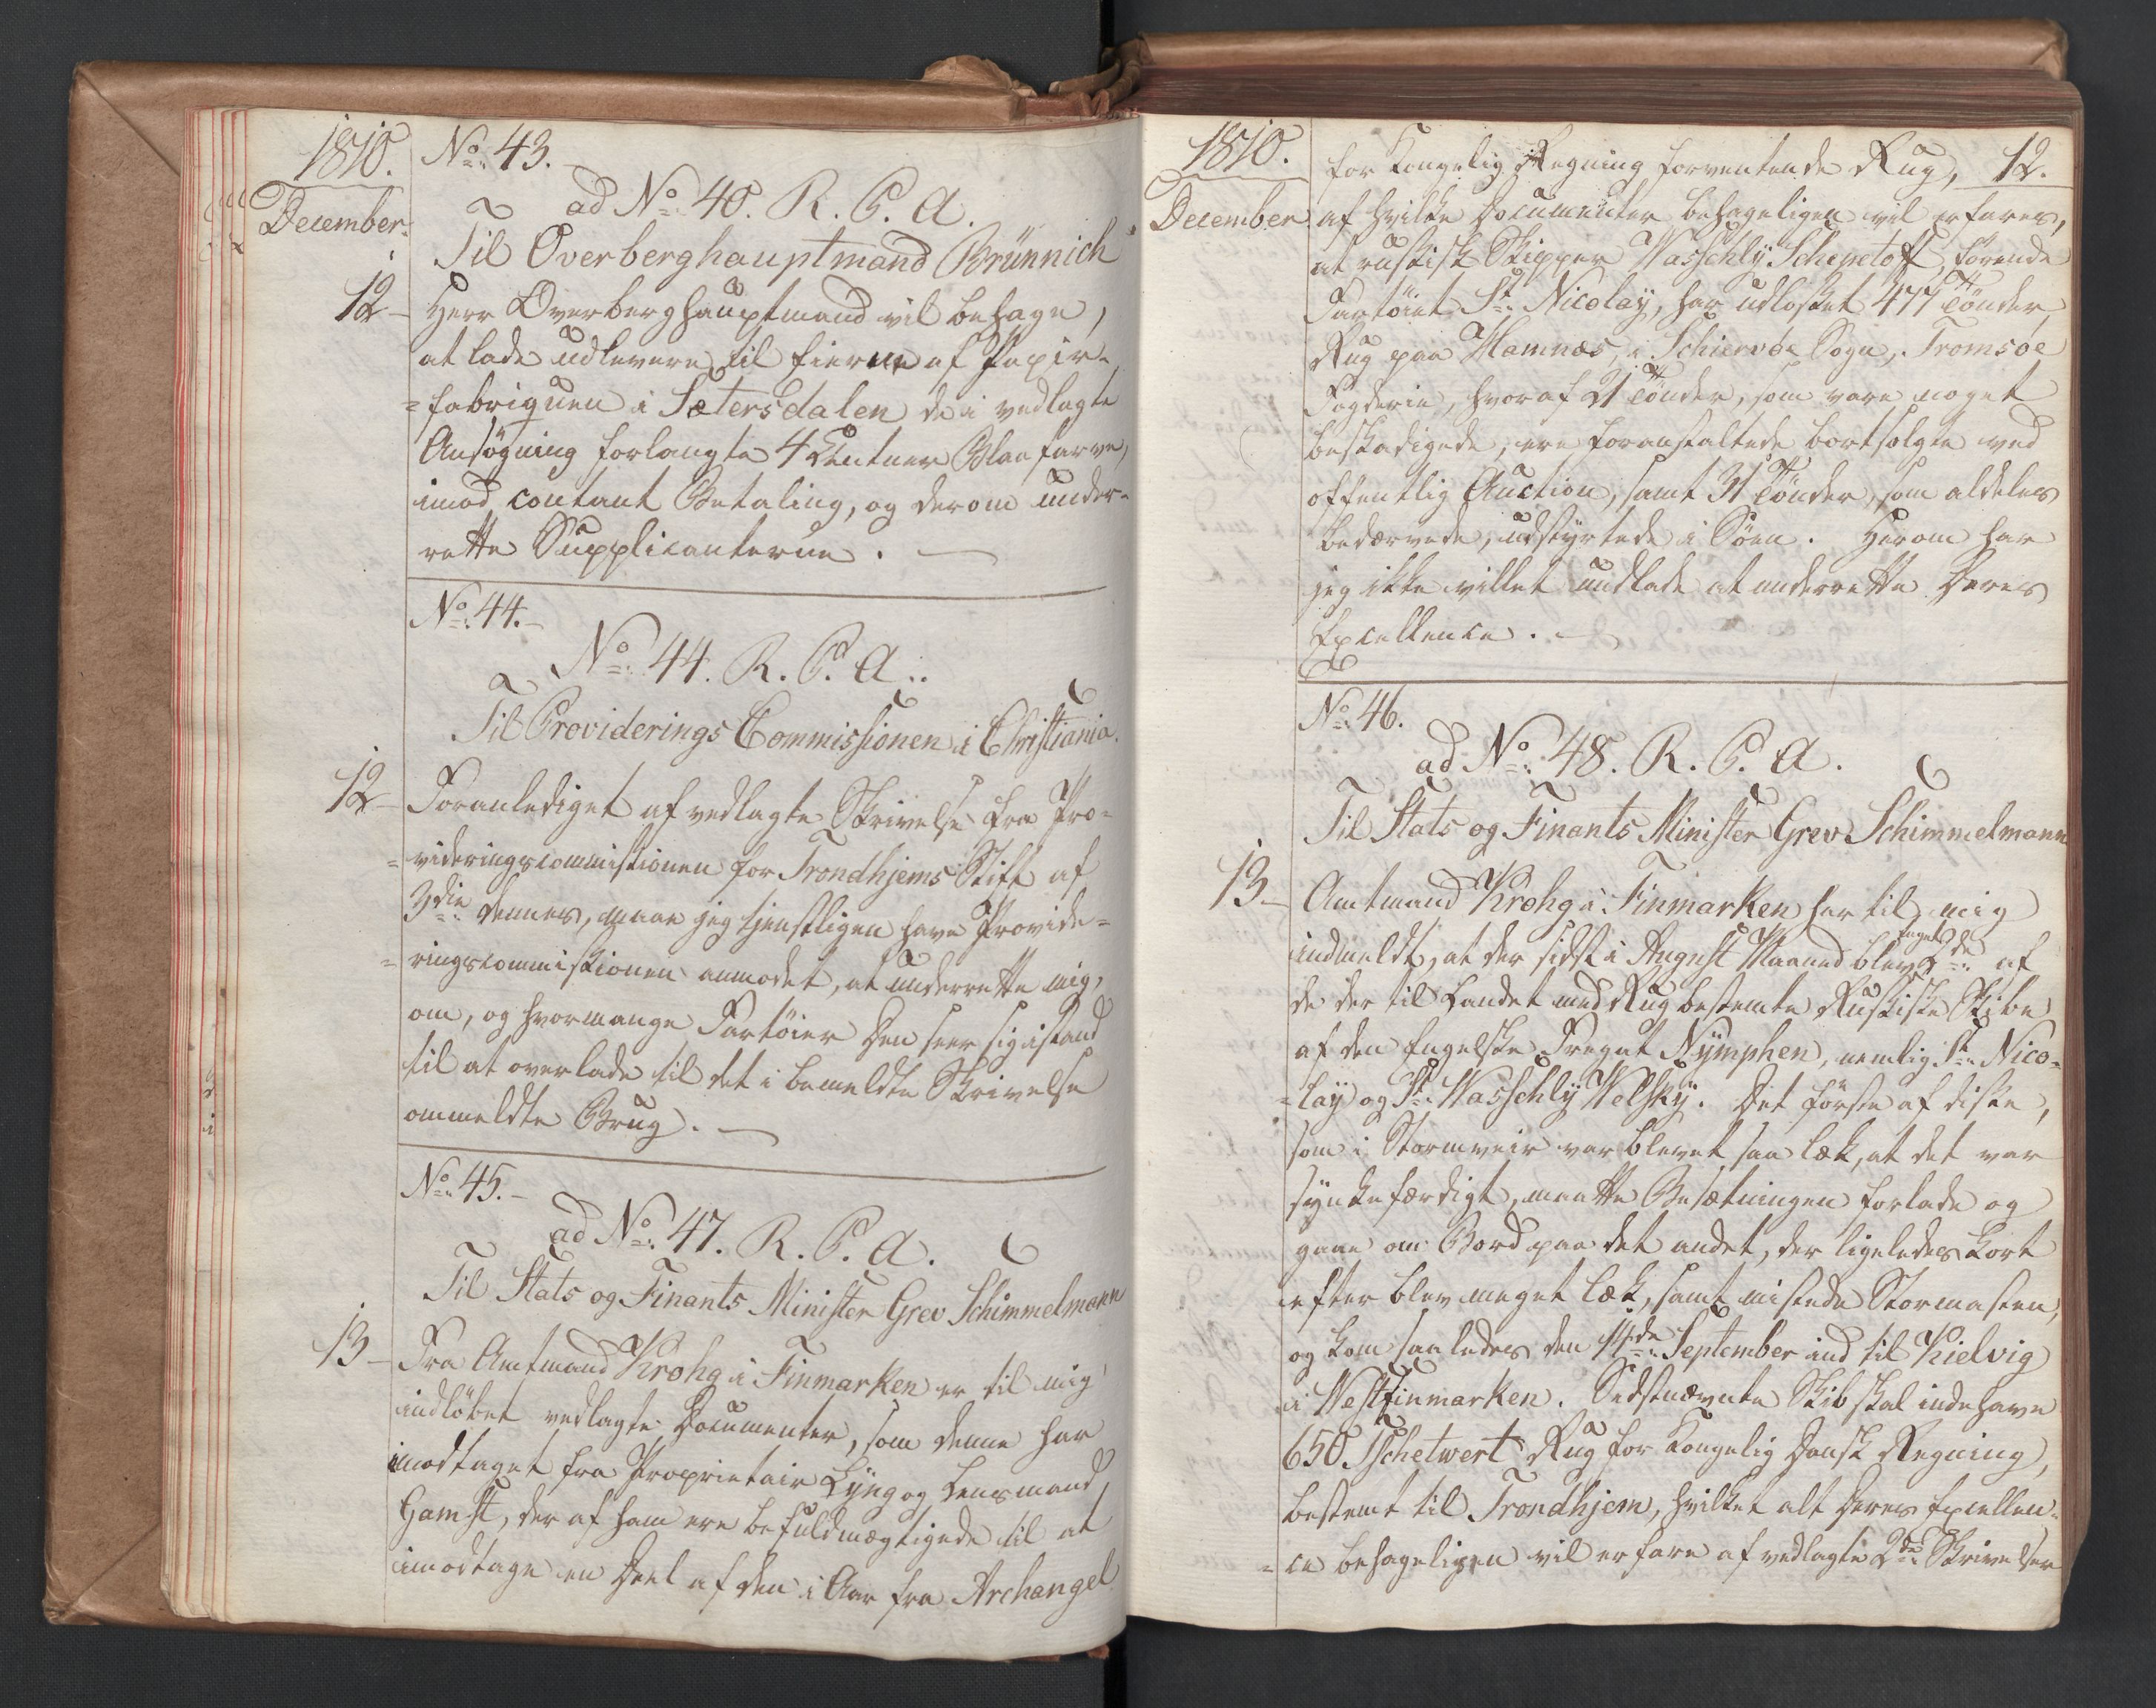 1810.
No: 43.
ad No: 40. R. C. A.
December.
Til Overberghauptmand Brünnich
12 - Herr Overberghauptmand vil behage,
at lade udlevere til Eierne af Papir-
=fabriquen i Sætersdalen de i vedlagte
Ansøgning forlangte 4 Centner Blaafarve,
imod contant Betaling, og derom under-
rette Supplicanterne. —
No: 44. -
No: 44. R. C. A.:
Til Providerings Commissionen i Christiania.
12 - Foranlediget af vedlagte Skrivelse fra Pro-
=videringscommissionen for Trondhjems Stift af
3die dennes, maae jeg tjenstligen have Provide-
=ringscommissionen anmodet, at underrette mig,
om, og hvormange Fartøier Den seer sig istand
til at overlade til det i bemeldte Skrivelse
ommeldte Brug. —
No: 45. -
ad No: 47. R. C. A.
Til Stats og Finants Minister Grev Schimmelmann
13 - Fra Amtmand Krohg i Finmarken er til mig
indløbet vedlagte Documenter, som denne har
imodtaget fra Proprietair Lyng og Lensmand
Gamst, der af ham ere befuldmægtigede til at
imodtage en Deel af den i Aar fra Archangel
1810.
for Kongelig Regning forventende Rug, 12.
December.
af hvilke Documenter behageligen vil erfares,
at russisk Skipper Wasschly Schepetoff, førende
Fartøiet St: Nicolay, har udlosset 477 Tønder
Rug paa Hamnæs, i Schiervøe Sogn, Tromsøe
Fogderie, hvoraf 21 Tønder, som vare noget
beskadigede, ere foranstaltede bortsolgte ved
offentlig Auction, samt 31 Tønder, som aldeles
bedærvede, udstyrtede i Søen. Herom har
jeg ikke villet undlade at underrette Deres
Excellence. —
No: 46.
ad No: 48. R. C. A.
Til Stats og Finants Minister Grev Schimmelmann
13 - Amtmand Krohg i Finmarken har til mig
indmeldt, at der sidst i August Maaned blev 2de af
de der til Landet med Rug bestemte Russiske Skibe
af den Engelske Fregat Nymphen, nemlig St: Nico-
=lay og St: Wasschly Welsky. Det første af disse,
som i Stormveir var blevet saa læk, at det var
synkefærdigt, maatte Besætningen forlade og
gaae om Bord paa det andet, der ligeledes kort
efter blev meget læk, samt mistede Stormasten,
og kom saaledes den 14de September ind til Kielvig
i Westfinmarken. Sidstnævnte Skib skal indehave
650 Tschetwert Rug for Kongelig Dansk Regning,
bestemt til Trondhjem, hvilket alt Deres Excellen-
=ce behageligen vil erfare af vedlagte 2de Skrivelser